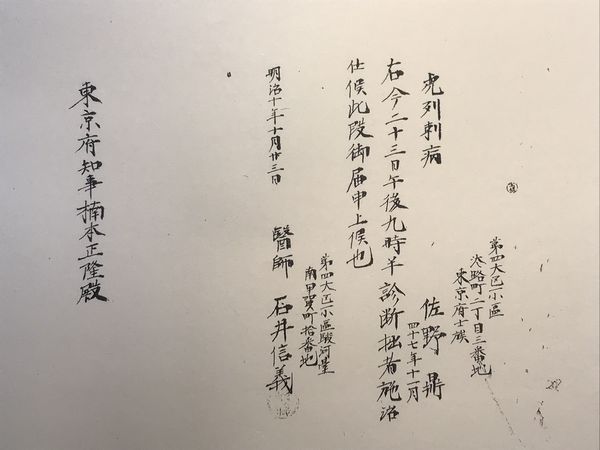 第四大区一小區
淡路町二丁目三番地
東京府士族
虎列刺病
佐野鼎
四十七年十一月
右今二十三日午後九時半診断拙者施治
仕候此段御届申上候也
第四大区一小區駿河臺
南甲賀町拾番地
明治十年十月廿三日
醫師 石井信義
東京府知事楠本正隆殿